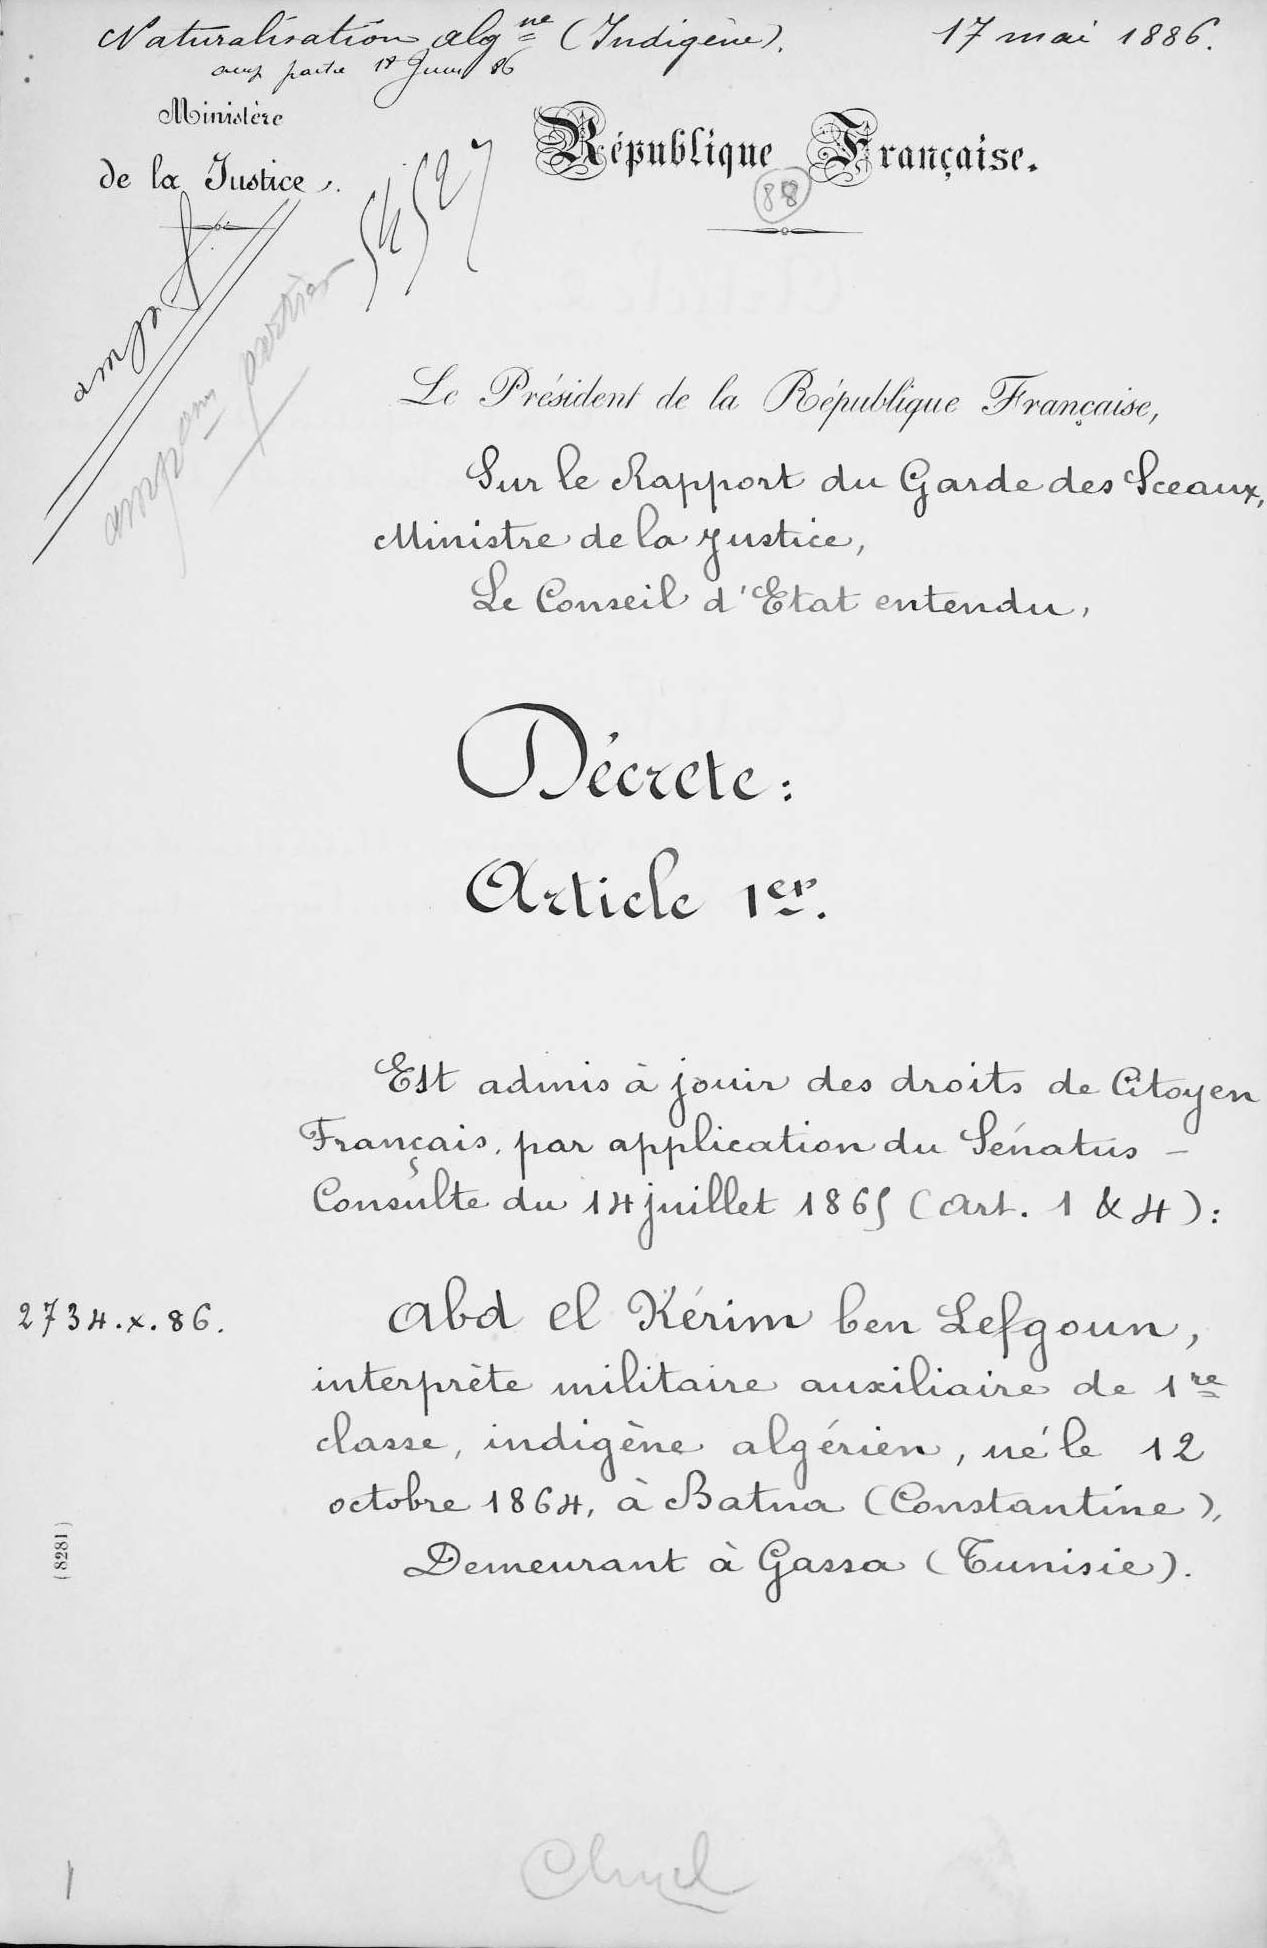 Naturalisation alg.ne (Indigène). 17 mai 1886.
partie 18 Juin 86
Ministère
de la Justice.
République Française.
88
54527
Le Président de la République Française,
Sur le Rapport du Garde des Sceaux,
Ministre de la Justice,
Le Conseil d'Etat entendu,
Décrete:
Article 1er.
Est admis à jouir des droits de Citoyen
Français, par application du Sénatus-
Consulte du 14 juillet 1865 (Art. 1 & 4):
2734.x.86.
Abd el Kérim ben Lefgoun,
interprète militaire auxiliaire de 1re
classe, indigène algérien, né le 12
octobre 1864, à Batna (Constantine),
Demeurant à Gassa (Tunisie).
(8281)